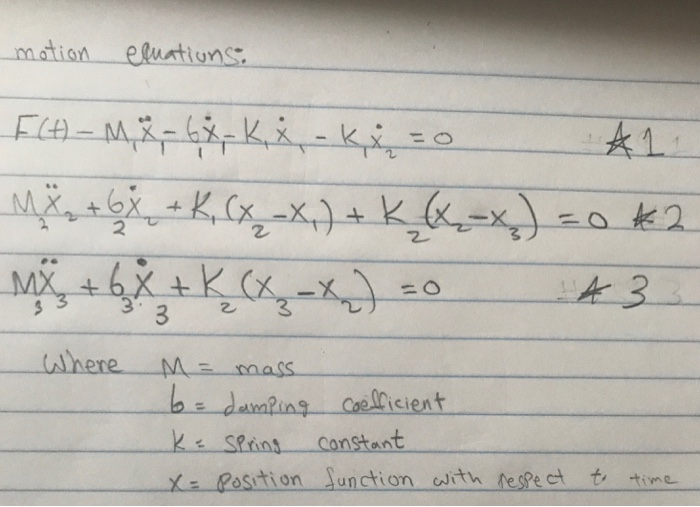 motion equations:
F(t) - M₁ẍ₁ - b₁ẋ₁ - K₁ẋ₁ - K₁ẋ₂ = 0 ★1
M₂ẍ₂ + b₂ẋ₂ + K₁(x₂-x₁) + K₂(x₂-x₃) = 0 ★2
M₃ẍ₃ + b₃ẋ₃ + K₂(x₃-x₂) = 0 ★3
Where M = mass
b = damping coefficient
K = spring constant
x = position function with respect to time